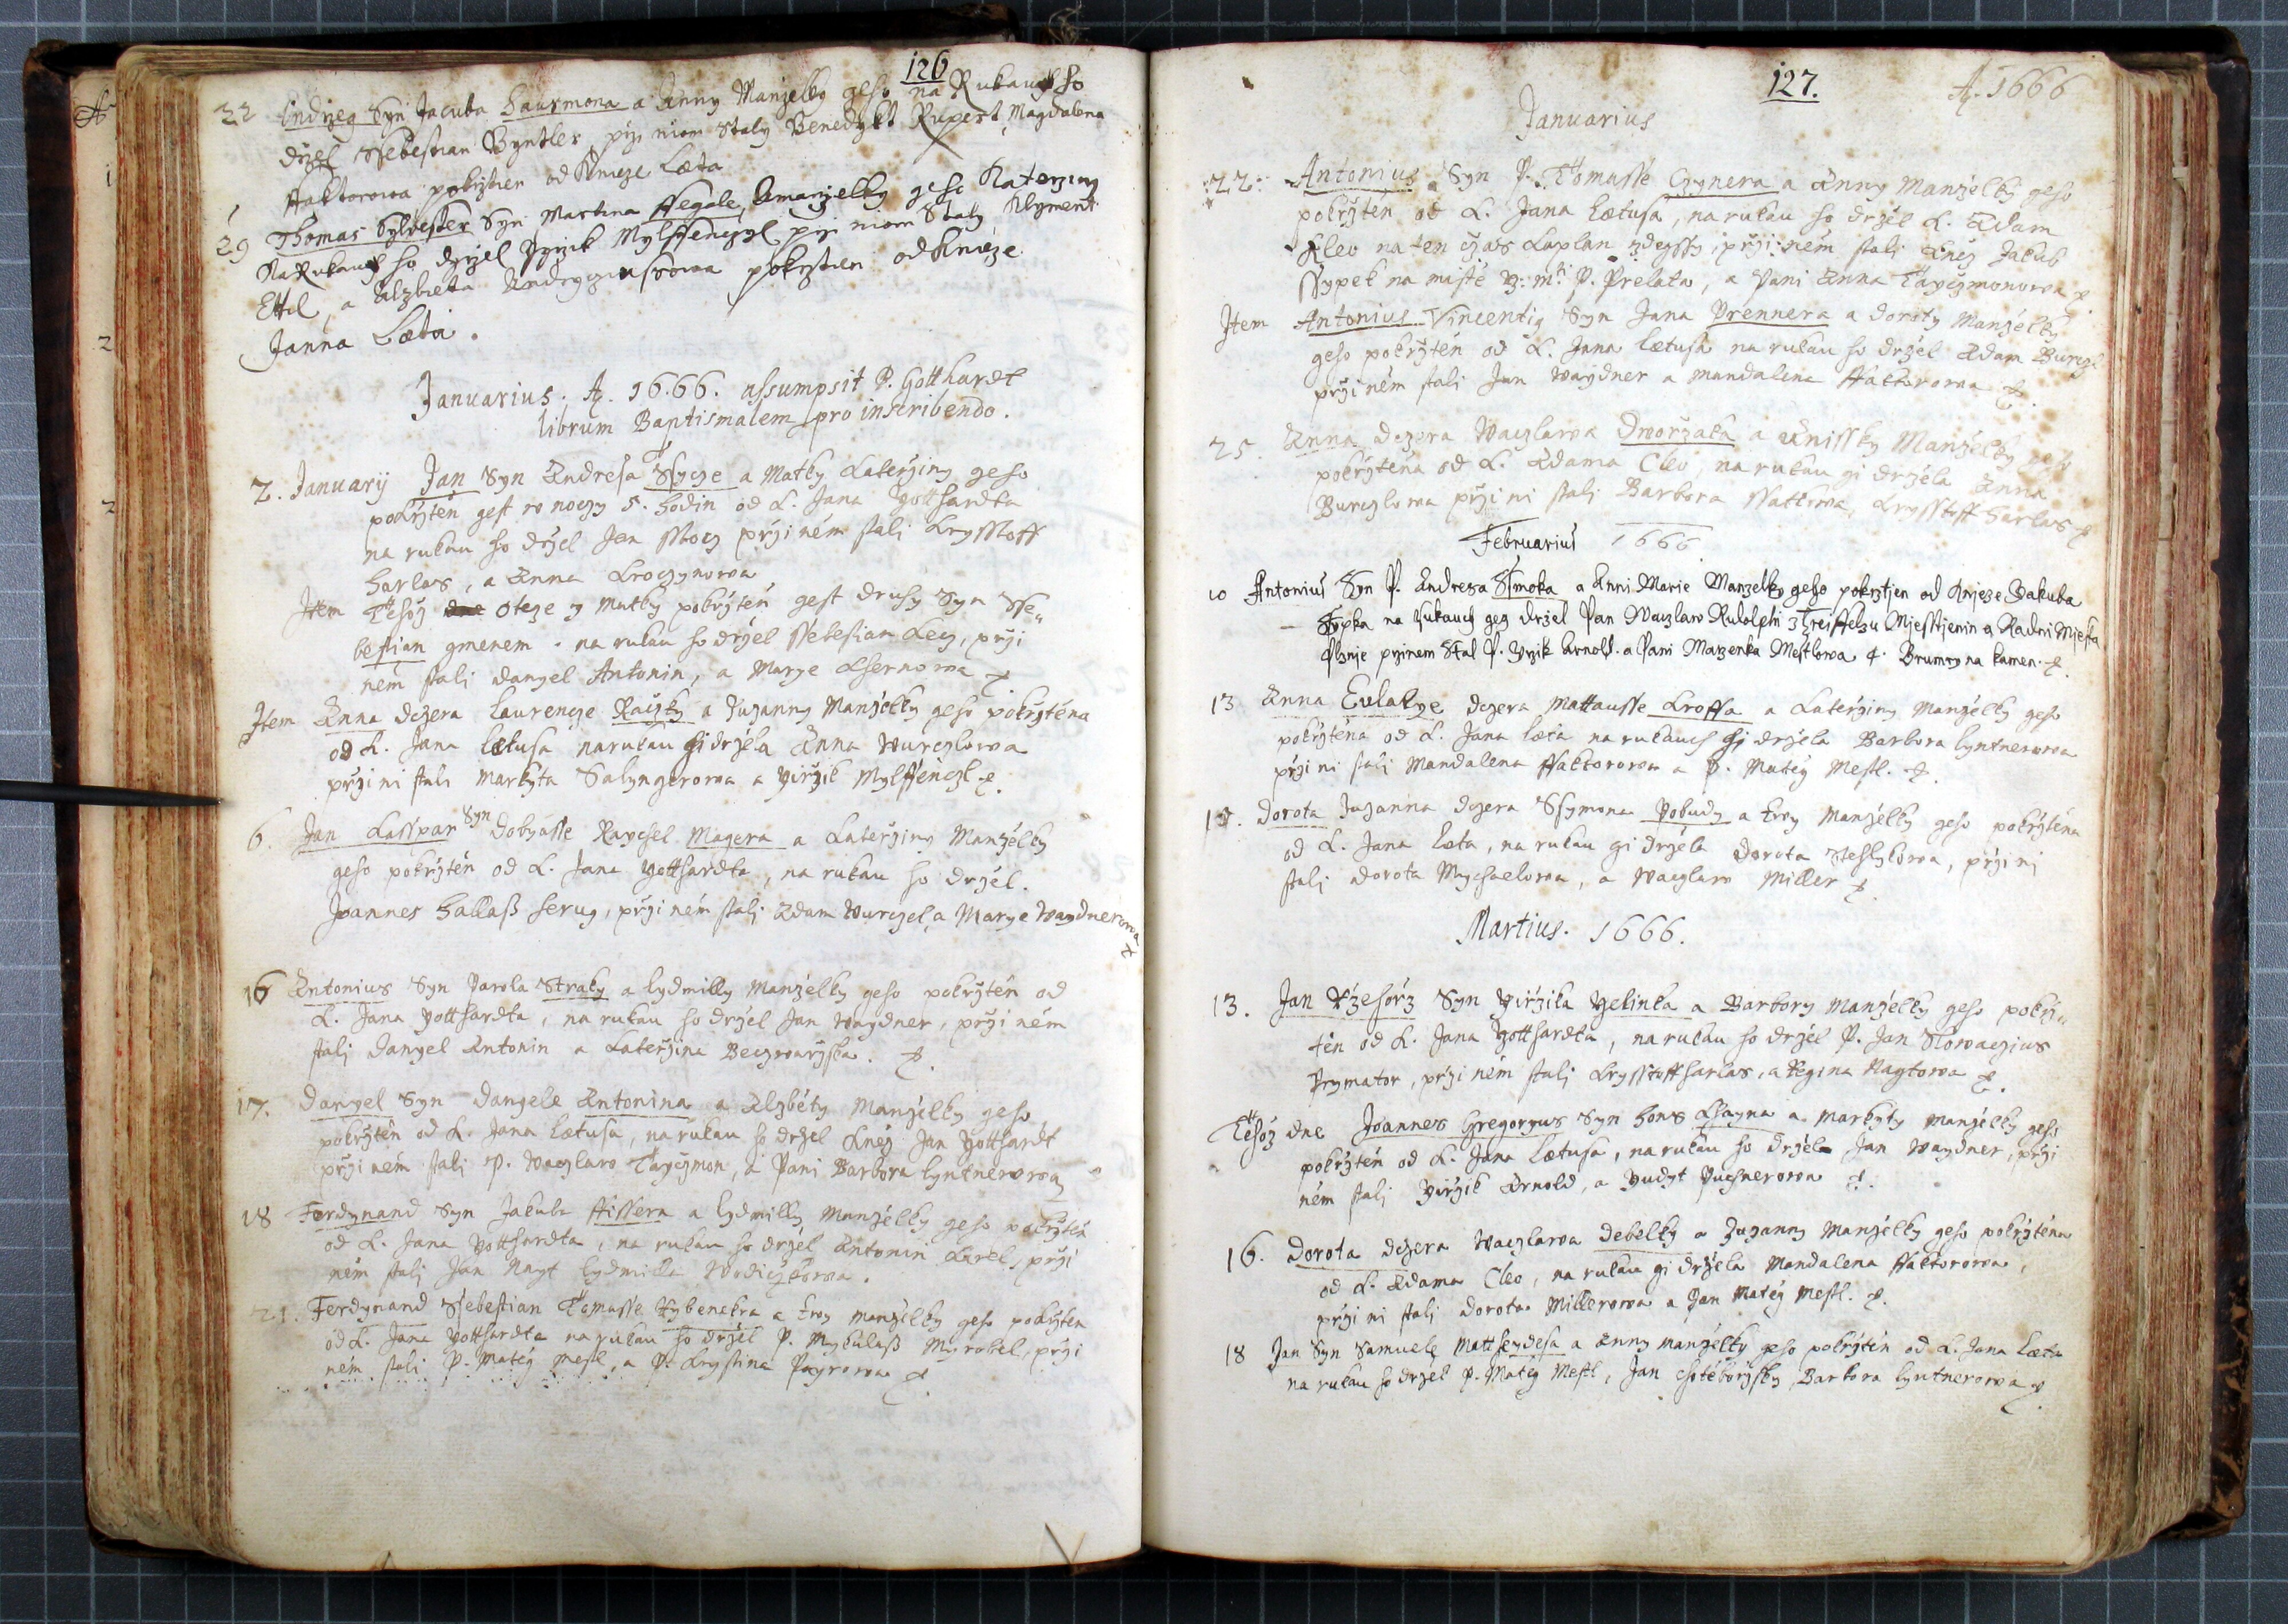 126
22 Indrzeg Syn Jacuba Haurmona a Anny Manzelky geho na Rukauch ho
držel Ssebestian Byntler, przi niom Staly Benedykt Rupert, Magdalena
Ffaktorowa pokrzten od Knieze Læta
29 Thomas Sylvester Syn Martina Ffegale, a manzielky geho Katerziny
Na Rukauch ho drziel Jirzik Mylffenczyl przi niom Staly Klyment
Ettl, a Alzbieta pokrzten od Knieze
Janna Læta.
Januarius. Aº. 1666. assumpsit P. Gotthardt
librum Baptismalem pro inscribendo.
2. Januarij Jan Syn Andresa a Matky Kateržiny geho
pokržtěn gest w noczy 5. hodin od K. Jana Gotthardta
na rukau ho držel Jan przi něm stali Krysstoff
Harlas, a Anna Kroczynowa
Item Tehož Otcze z Matky pokržtěn gest druhy Syn Sse„
bestian gmenem. na rukau ho držel Ssebestian Lecz, prži
něm stali Danyel Antonin, a Marye
Item Anna dczera Laurencze Raczky a Zuzanny Manželky geho pokržtěna
od K. Jana Lætusa na rukau gi držela Anna Wurczlowa
prži ni stali Markyta Salyngerowa a Giržik Mylffenczl
6. Jan Kasspar Syn Dobyasse Raychel Magera a Kateržiny Manželky
geho pokržtěn od K. Jana Gotthardta, na rukau ho držel.
Joannes Hallaß, prži něm stalj Adam Wurczel, a Marye Waydnerowa
16 Antonius Syn Karola Straky a Lydmilly Manželky geho pokržtěn od
K. Jana Gotthardta, na rukau ho držel Jan Waydner, prži něm
stalj Danyel Antonin a Kateržina Beczwaržska.
17. Danyel Syn Danyele Antonina a Alzběty Manželky geho
pokržtěn od K. Jana Lætusa, na rukau ho držel Kněz Jan Gotthardt
prži něm stali P. Waczlaw Tayczmon, a Pani Barbora Lyntnerowa
18 Ferdynand Syn Jakuba Ffissera a Lydmilly Manželky geho pokržtěn
od K. Jana Gotthardta, na rukau ho držel Antonin Karel, prži
něm stalj Jan Nagt Lydmilla Wodiczkowa.
21. Ferdynand Ssebestian Tomasse Rybenckra a Ewy manželky geho pokržtěn
od K. Jana Gotthardta na rukau ho držel P. Mykulaß Myrobel, prži
něm stali P. Matěg Mestl, a P. Krystina Payrowa
127. Aº. 1666
Januarius
22. Antonius Syn P. Tomasse Czynera a Anny Manželky geho
pokržtěn od K. Jana Lætusa, na rukau ho držel K. Adam
Kleo na ten czas Kaplan zdeyssy, prži něm stali Kněz Jakub
Ssypek na mistě P. Prelata, a Pani Anna Tayczmonowa
Item Antonius Vincentig Syn Jana Prennera a Doroty Manželky
geho pokržtěn od K. Jana Lætusa na rukau ho držel Adam Burczl
prži něm stali Jan Waydner a Mandalena Ffaktorowa
25. Anna dczera Waczlawa Dworzaka a Anissky Manželky geho
pokržtěna od K. Adama Cleo, na rukau gi držela Anna
Burczlowa prži ni stalj Barbora Ssatkowa, Krysstoff Harlas
Februarius 1666
10 Antonius Syn P. Andresa Ssmoka a Anni Marie Manzelky geho pokrztjen od Knjeze Jakuba
Ssypka na Rukauch geg držel Pan Waczlaw Rudolphi z Mjesstjenin a Radni Mjesta
Plznje przinem Stal P. Yrzik Arnold. a Pani Marzenka Mestlowa
13 Anna Eulalye dczera Mattausse Kroffa a Kateržiny Manželky geho
pokržtěna od K. Jana Læta na rukauch gi držela Barbora Lyntnerowa
prži ni stalj Mandalena Ffaktorowa a P. Matěg Mestl.
Dorota Zuzanna dczera Ssymona Pobudy a Ewy Manželky geho pokržtěna
od K. Jana Læta, na rukau gi držela Dorota, prži ni
stalj Dorota Mychaelowa, a Waczlaw Miller
Martius. 1666.
13. Jan Ržehorž Syn Giržika Gelinka a Barbory Manželky geho pokrž„
těn od K. Jana Gotthardta, na rukau ho držel P. Jan Slowaczius
Prymator, prži něm stalj Krysstoff Harlas, a Regina Nagtowa
Tehož dne Joannes Gregoryus Syn Hons Khayna a Markyty Manželky geho
pokržtěn od K. Jana Lætusa, na rukau ho držel Jan Waydner, prži
něm stalj Giržik Arnold, a Judyt Puchnerowa
16. Dorota dczera Waczlawa Debelky a Zuzanny Manželky geho pokržtěna
od K. Adama Cleo, na rukau gi držela Mandalena Ffaktorowa,
prži ni stalj Dorota Millerowa a Jan Matěg Mestl.
18 Jan Syn Samuele Mattheydesa a Anny manželky geho pokržtěn od K. Jana Læta
na rukau ho držel P. Matěg Mestl, Jan Chotěboržsky, Barbora Lyntnerowa